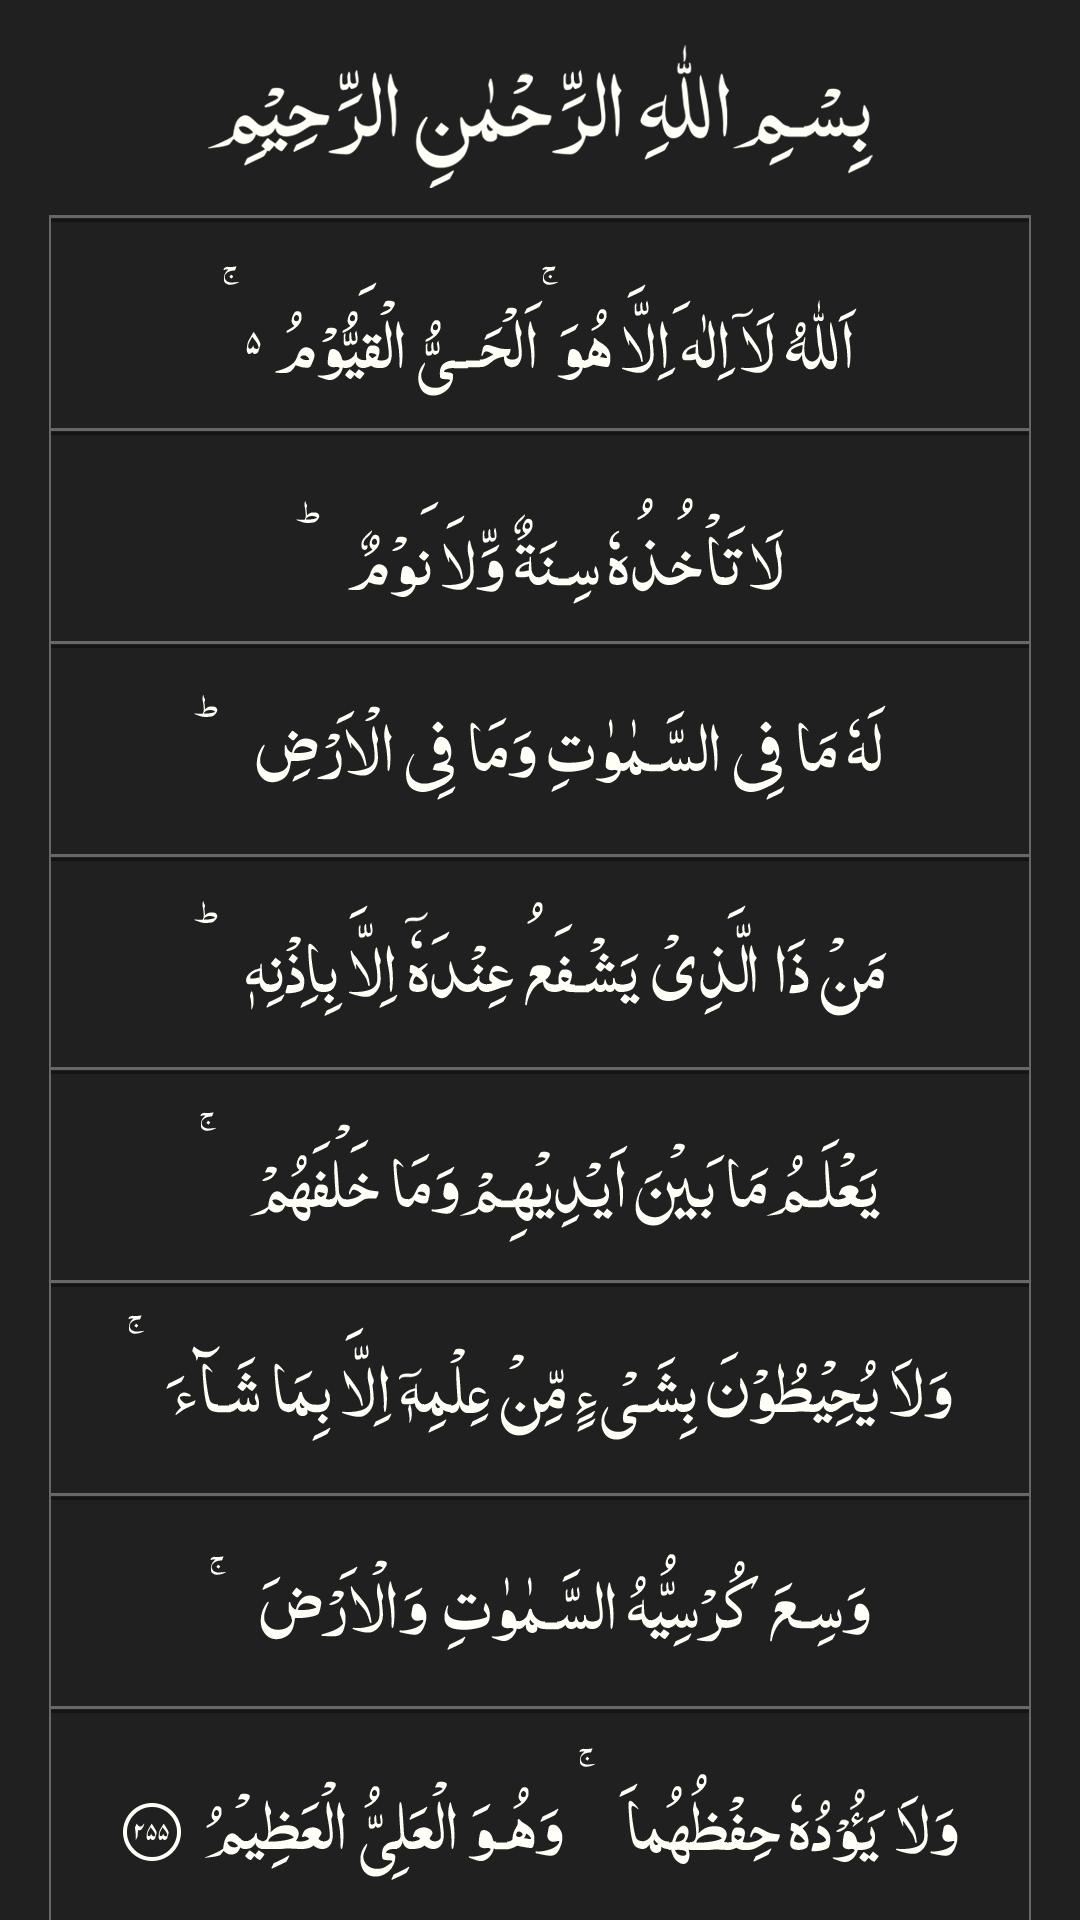 بِسْمِ اللّٰهِ الرَّحْمٰنِ الرَّحِيْمِ
اَللّٰهُ لَاۤ اِلٰهَ اِلَّا هُوَ ۚ اَلْحَـىُّ الْقَيُّوْمُ ۚ ۵
لَا تَاْخُذُهٗ سِنَةٌ وَّلَا نَوْمٌ ؕ
لَهٗ مَا فِى السَّمٰوٰتِ وَمَا فِى الْاَرْضِ ؕ
مَنْ ذَا الَّذِىْ يَشْفَعُ عِنْدَهٗۤ اِلَّا بِاِذْنِهٖ ؕ
يَعْلَمُ مَا بَيْنَ اَيْدِيْهِمْ وَمَا خَلْفَهُمْ ۚ
وَلَا يُحِيْطُوْنَ بِشَىْءٍ مِّنْ عِلْمِهٖۤ اِلَّا بِمَا شَآءَ ۚ
وَسِعَ كُرْسِيُّهُ السَّمٰوٰتِ وَالْاَرْضَ ۚ
وَلَا يَؤُدُهٗ حِفْظُهُمَا ۚ وَهُوَ الْعَلِىُّ الْعَظِيْمُ ۲۵۵